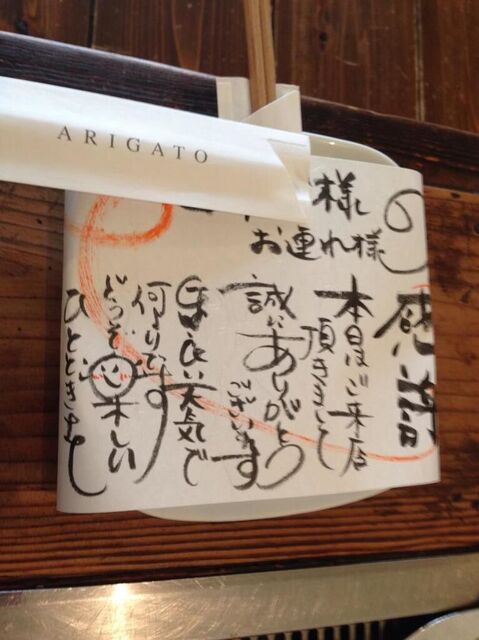 ARIGATO
感謝
様
お連れ様
本日はご来店
頂きまして
誠にありがとう
ございます
良い天気で
何よりです
どうぞ楽しい
ひとときを